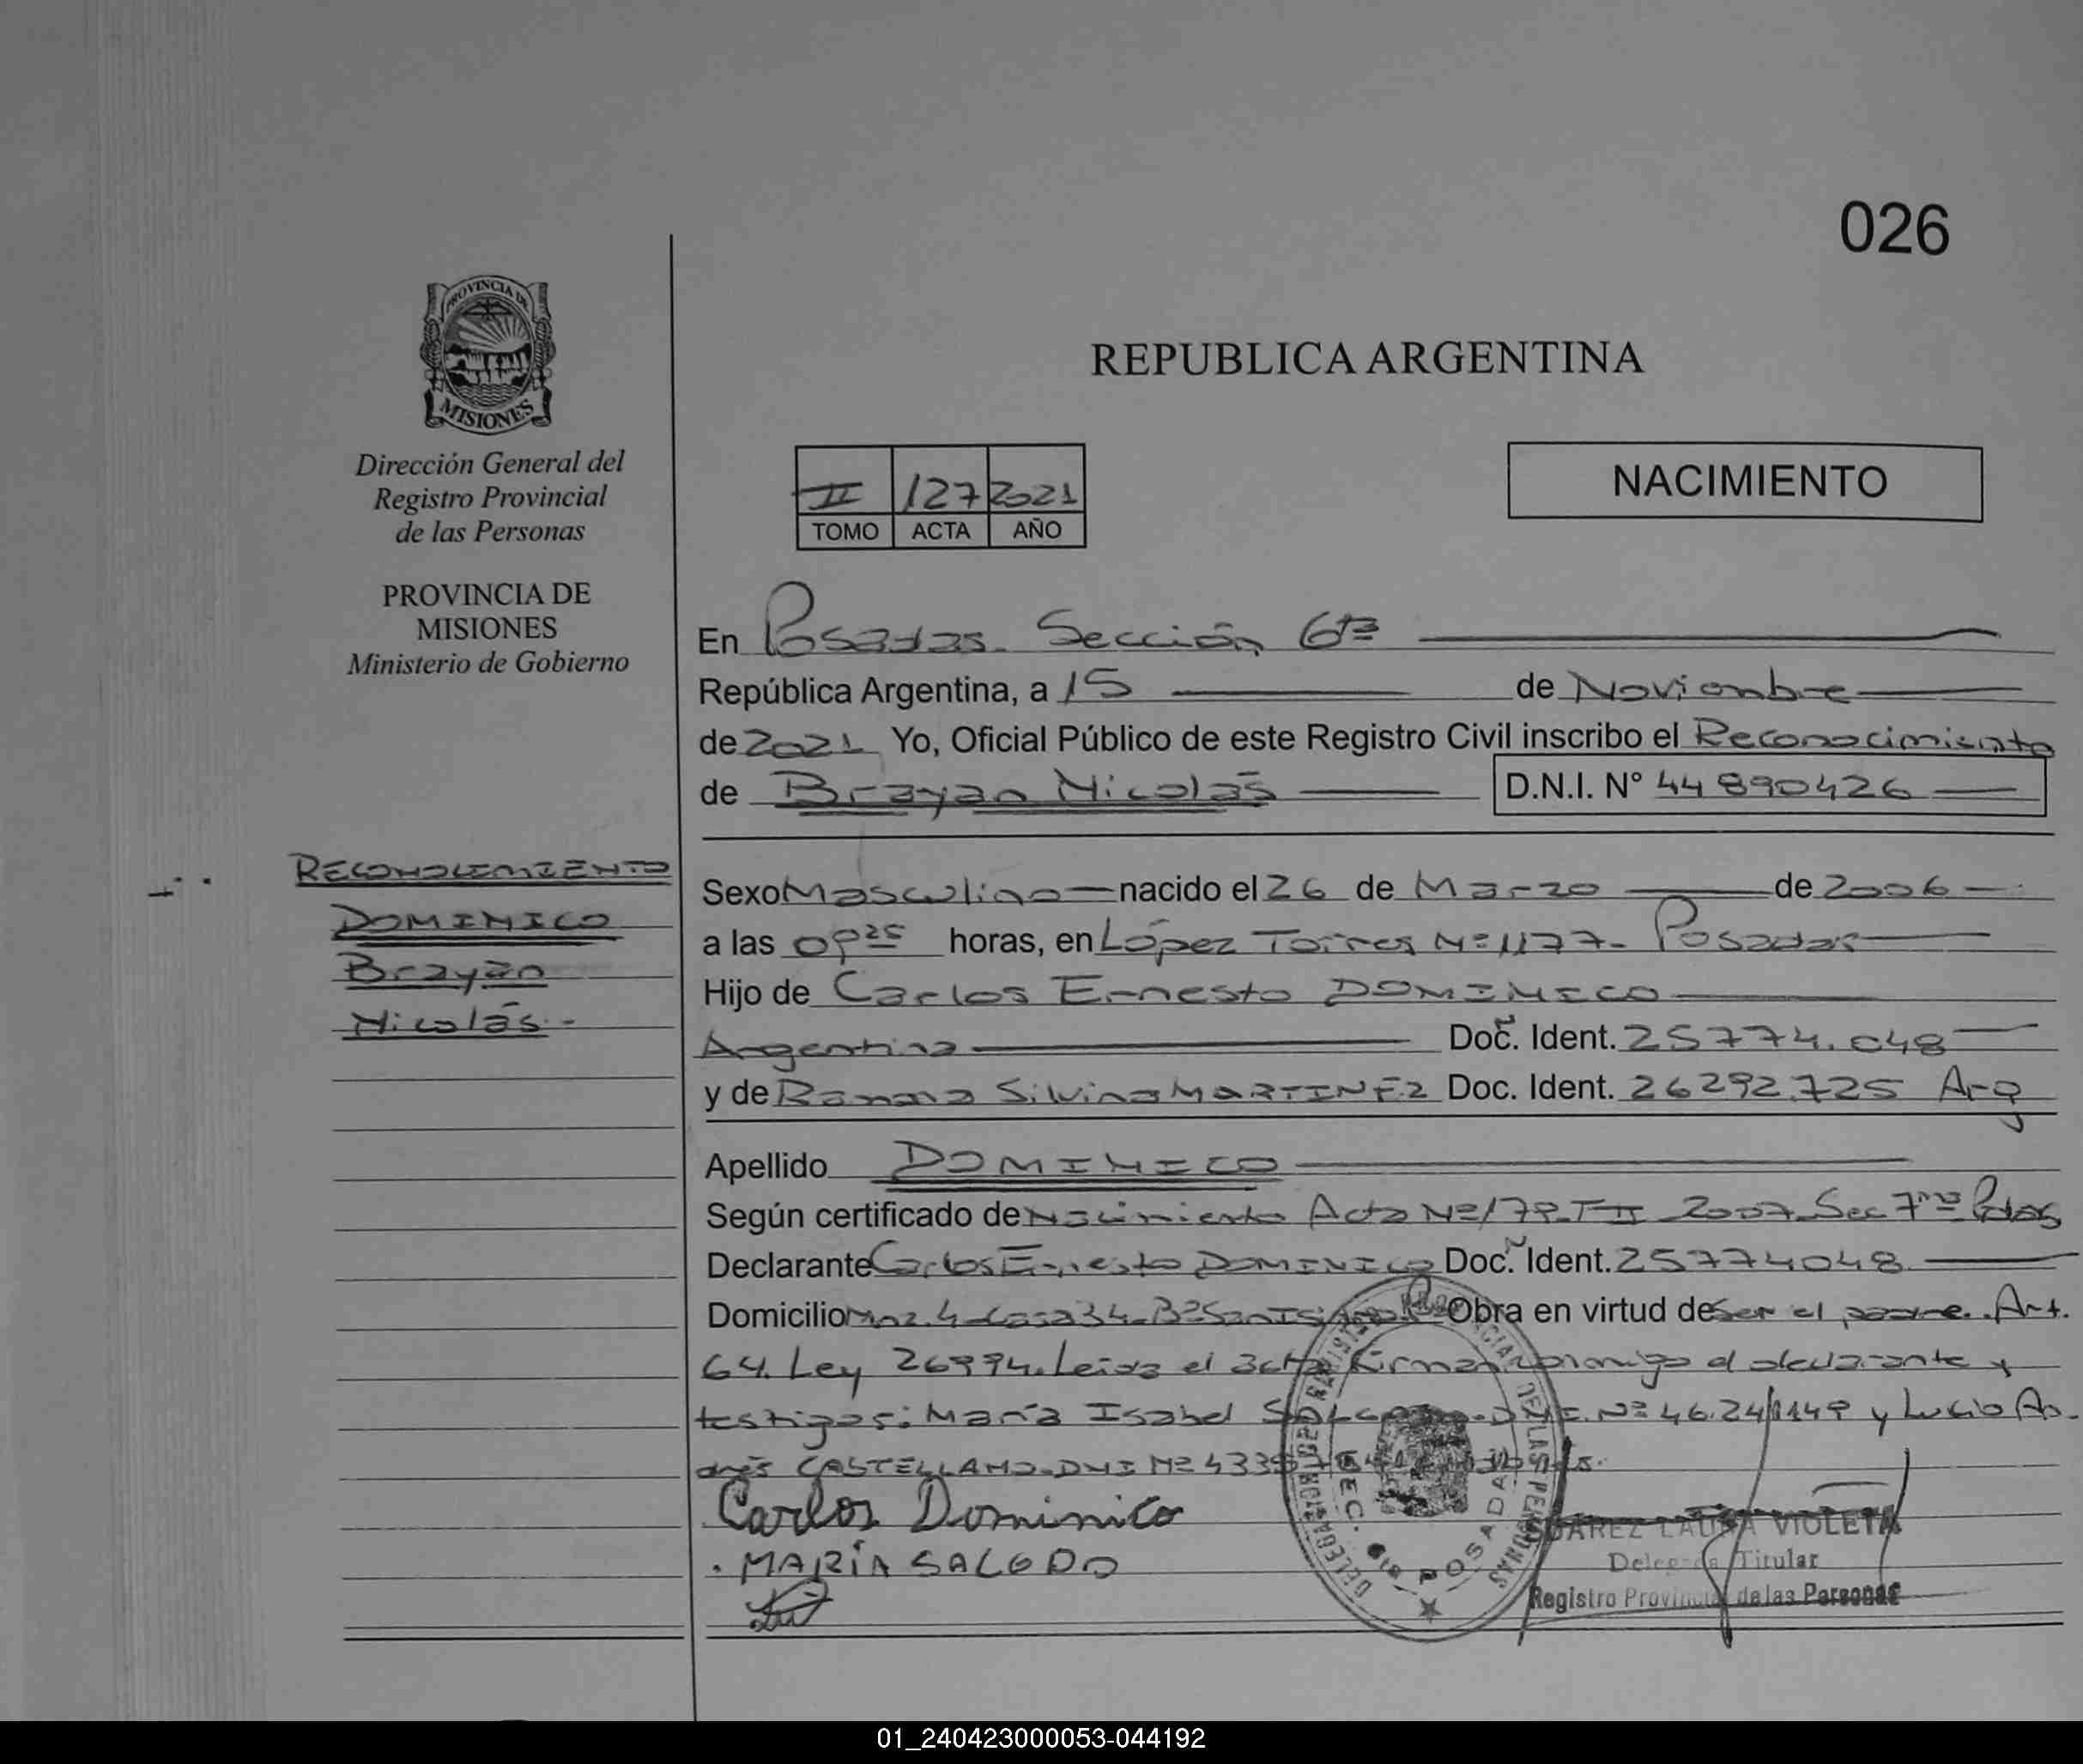 026
PROVINCIA DE
MISIONES
Dirección General del
Registro Provincial
de las Personas
PROVINCIA DE
MISIONES
Ministerio de Gobierno
REPUBLICA ARGENTINA
II 127 2021
TOMO ACTA AÑO
NACIMIENTO
En Posadas. Sección 6ta
República Argentina, a 15 de Noviembre
de 2021 Yo, Oficial Público de este Registro Civil inscribo el Reconocimiento
de Brayan Nicolás D.N.I. N° 44890426
RECONOCIMIENTO
DOMINICO
Brayan
Nicolás.-
Sexo Masculino nacido el 26 de Marzo de 2006
a las 09 25 horas, en López Torres Nº 1177- Posadas
Hijo de Carlos Ernesto DOMINICO
Argentina Doc. Ident. 25774.048
y de Ramona Silvina MARTINEZ Doc. Ident. 26292.725 Arg
Apellido DOMINICO
Según certificado de Nacimiento Acta Nº 179-T II 2007-Sec 7ma Pdas
Declarante Carlos Ernesto DOMINICO Doc. Ident. 25774048
Domicilio Mnz. 4-Casa 34-Bº San Isidro Obra en virtud de Ser el padre. Art.
64. Ley 26994. Leida el acta Firman conmigo el declarante y
testigos: María Isabel Nº 46.241149 y Lucio An-
drés CASTELLANO-DNI Nº
Carlos Dominico
MARÍA SALCEDO
DELEGACION DEL REGISTRO PROVINCIAL DE LAS PERSONAS
SEC. 6ta POSADAS
SUAREZ LAURA VIOLETA
Delegada Titular
Registro Provincial de las Personas
01_240423000053-044192